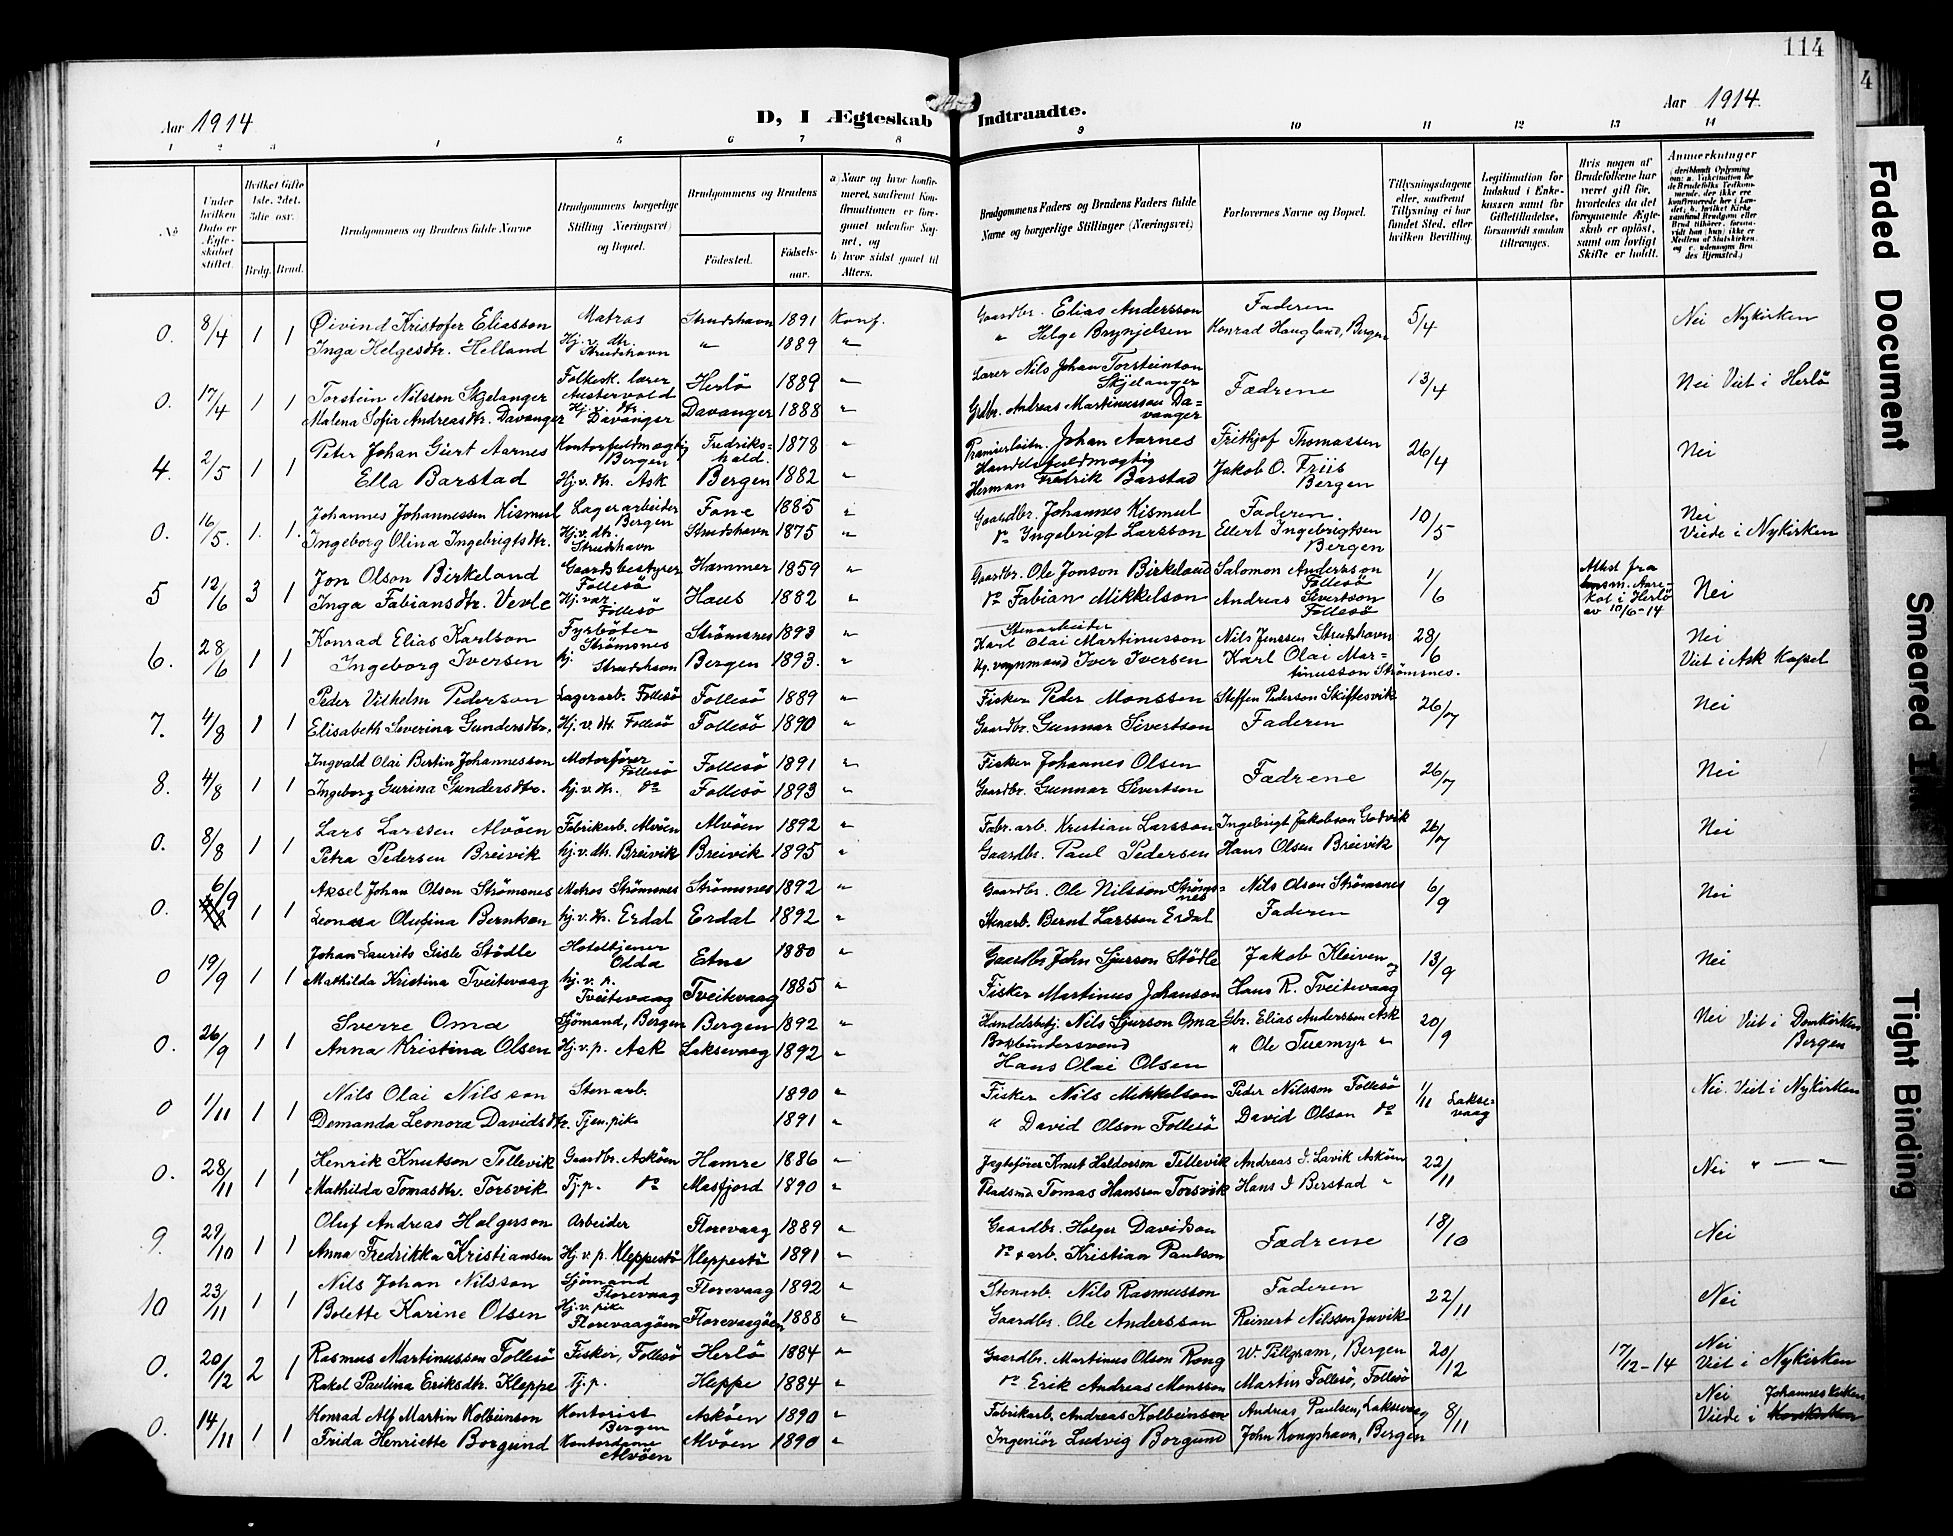 114
Aar 1914
D, I Ægteskab
Indtraadte.
Aar 1914.
1 2 3 4 5 6 7 8 9 10 11 12 13 14
No
Under hvilken Dato er Ægteskabet stiftet.
Hvilket Gifte 1ste, 2det, 3die osv.
Brdg. Brud.
Brudgommens og Brudens fulde Navne
Brudgommens borgerlige Stilling (Næringsvei) og Bopæl.
Brudgommens og Brudens
Fødested.
Fødselsaar.
a) Naar og hvor konfirmeret, saafremt Konfirmationen er foregaaet udenfor Sognet, og
b) hvor sidst gaaet til Alters.
Brudgommens Faders og Brudens Faders fulde Navne og borgerlige Stillinger (Næringsvei)
Forlovernes Navne og Bopæl.
Tillysningsdagene eller, saafremt Tillysning ei har fundet Sted, efter hvilken Bevilling.
Legitimation for Indskud i Enkekassen samt for Giftetilladelse, forsaavidt saadan tiltrænges.
Hvis nogen af Brudefolkene har været gift før, hvorledes da det foregaaende Ægteskab er opløst, samt om lovligt Skifte er holdt.
Anmerkninger
0. 8/4 1 1 Øivind Kristofer Eliasson Matros Strudshavn 1891 Konf. Gaardbr. Elias Andersson Faderen 5/4 Nei Nykirken
Inga Helgesdtr. Helland Hj. v. dtr. Strudshavn " 1889 " " Helge Brynjelsen Konrad Haugland, Bergen
0. 17/4 1 1 Torstein Nilsson Skjelanger Folkesk. lærer Austervold Herlö 1889 " Lærer Nils Johan Torsteinson Skjelanger Fædrene 13/4 Nei Viet i Herlö
Malena Sofia Andreasdtr. Davanger Hj. v. dtr. Davanger Davanger 1888 " Grdbr. Andreas Martinusson Davanger
4. 2/5 1 1 Peter Johan Giert Aarnes Kontorfuldmægtig Bergen Fredrikshald. 1878 " Premierløitn. Johan Aarnes Frithjof Thomassen 26/4 Nei
Ella Barstad Hj. v. dtr. Ask Bergen 1882 " Handelsfuldmægtig Herman Fredrik Barstad Jakob O. Friis Bergen
0. 16/5. 1. 1. Johannes Johannessen Kismul Lagerarbeider Bergen Fane 1885 " Gaardbr. Johannes Kismul Faderen. 10/5 Nei
Ingeborg Olina Ingebrigtsdtr. Hj. v. dtr. Strudshavn Strudshavn 1875 " do Ingebrigt Larsson Ellert Ingebrigtsen Bergen Viede i Nykirken
5 12/6 3 1 Jon Olson Birkeland Gaardsbestyrer Follesö Hammer 1859 " Gaardbr. Ole Jonson Birkeland Salomon Andersson Follesö 1/6 Attest fra Aarekol i Herlö av 10/6-14 Nei
Inga Fabiansdtr. Hj. var. Follesö Haus 1882 " do Fabian Mikkelson Andreas Sivertson Follesö
6. 28/6 1 1 Konrad Elias Karlson Fyrbøter Strømsnes Strømsnes 1893 " Stenarbeider Karl Olai Martinusson Nils Jenssen Strudshavn 28/6 Nei
Ingeborg Iversen hj. Strudshavn Bergen 1893. " vognmand Iver Iversen Karl Olai Martinusson Strømsnes. Viet i Ask Kapel
7. 4/8 1 1 Peder Vilhelm Pederson Lagerarb. Follesö Follesö 1889 " Fisker Peder Monssen Steffen Pederson Skiftesvik 26/7 Nei
Elisabeth Severina Gundersdtr. Hj. v. dtr. Follesö Follesö 1890 " Gaardbr. Gunnar Sivertson Faderen
8. 4/8 1 1 Ingvald Olai Bertin Johannesson Motorfører Follesö Follesö 1891 " Fisker Johannes Olsen Fædrene 26/7 Nei
Ingeborg Gurina Gundersdtr. hj. v. dtr. do Follesö 1893 " Gaardbr. Gunnar Sivertsen
0. 8/8 1 1 Lars Larssen Alvøen Fabrikarb. Alvøen Alvøen 1892 " Fabr. arb. Kristian Larsson Ingebrigt Jakobson Godvik 26/7 Nei
Petra Pedersen Breivik hj. v. dtr. Breivik Breivik 1895 " Gaardbr. Paul Pedersen Hans Olsen Breivik
0. 6/9 1 1 Aksel Johan Olson Strømsnes Matros Strømsnes Strømsnes 1892 " Gaardbr. Ole Nilsson Strømsnes Nils Olson Strømsnes 6/9 Nei
Olufina Berntsen hj. v. dtr. Erdal Erdal 1892 " Stenarb. Bernt Larsson Erdal Faderen
0 19/9 1 1 Johan Laurits Gisle Stødle Hoteltjener Odda Etne 1880 " Gaardbr John Sjurson Stødle Jakob Kleiven og 13/9 Nei
Mathilda Kristina Tveitevaag hj. v. p. Tveitevaag Tveitevaag 1885 " Fisker Martinus Johanson Hans R. Tveitevaag
0. 26/9 1 1 Sverre Oma Sjømand, Bergen Bergen 1892 " Handelsbetj. Nils Sjurson Oma Gbr. Elias Andersson Ask 20/9 Nei Viet i Domkirken Bergen
Anna Kristina Olsen Hj. v. p. Ask Laksevaag 1892 " Bokbindersvend Hans Olai Olsen " Ole Tuemyr "
0 1/11 1 1 Nils Olai Nilsson Stenarb. 1890 " Fisker Nils Mikkelson Peder Nilsson Follesö 1/11 Laksevaag Nei. Viet i Nykirken
Demanda Leonora Davidsdtr. Tjen. pike 1891 " " David Olson Follesö David Olson do
0. 28/11 1 1 Henrik Knutson Tellevik Gaardbr. Askøen Hamre 1886 " Jægtefører Knut Haldorson Tellevik Andreas I. Lavik Askøen 22/11 Nei " — "
Mathilda Tomasdtr. Torsvik Tj. p. do Masfjord 1890 " Pladsmd Tomas Hanssen Torsvik Hans I Berstad "
9. 29/10 1 1 Oluf Andreas Holgerson Arbeider Florevaag 1889 " Gaardbr. Holger Davidson Fædrene 18/10 Nei
Anna Fredrikka Kristiansen Hj. v. p. Kleppestö Kleppestö 1891 " do & arb. Kristian Paulson
10 23/11 1 1 Nils Johan Nilsson Sjømand Florevaag Florevaag 1892 " Stenarb. Nils Rasmusson Faderen 22/11 Nei
Bolette Karine Olsen Hj. v. pike Florevaagøen Florevaagøen 1888 " Gaardbr. Ole Andersson Reinert Nilssen Juvik
0. 20/12 2 1 Rasmus Martinusson Follesö Fisker, Follesö Herlö 1884 " Gaardbr. Martinus Olson Rong W. Pellgram, Bergen 20/12 17/12-14 Nei Viet i Nykirken
Rakel Paulina Eriksdtr. Kleppe Tj. p. Kleppe 1884 " do Erik Andreas Monsson Martin Follesö, Follesö
0. 14/11 1 1 Konrad Alf Martin Kolbeinson Kontorist Bergen Askøen 1890 " Fabrikarb. Andreas Kolbeinsen Andreas Paulsen, Laksevaag 8/11 Nei Johanneskirken
Frida Henriette Borgund Kontordame Alvøen Alvøen 1890 " Ingeniør Ludvig Borgund John Kongshavn, Bergen Viede i Korskirken
4
Faded Document
Smeared Ink
Tight Binding